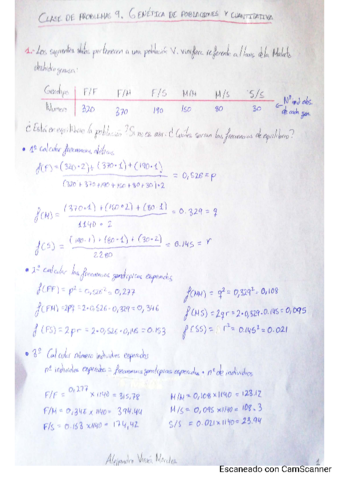 CLASE DE PROBLEMAS 9. GENÉTICA DE POBLACIONES Y CUANTITATIVA
1. Los siguientes datos pertenecen a una población V.
deshidrogenasa:
Genotipo F/F F/M F/S M/M M/S S/S
Número 320 370 190 150 80 30
¿Está en equilibrio la población? Si no es así ¿Cuáles serían las frecuencias de equilibrio?
• 1º calcular frecuencias
f(F) = (320·2) + (370·1) + (190·1) / (320+370+190+150+80+30)·2 = 0,526 = p
f(M) = (370·1) + (150·2) + (80·1) / 1140·2 = 0.329 = q
f(S) = (190·1) + (80·1) + (30·2) / 2280 = 0.145 = r
• 2º calcular las frecuencias genotípicas esperadas
f(FF) = p² = 0,526² = 0,277 f(MM) = q² = 0,329² = 0,108
f(FM) = 2pq = 2·0,526·0,329 = 0,346 f(MS) = 2qr = 2·0,329·0,145 = 0,095
f(FS) = 2pr = 2·0,526·0,145 = 0.153 f(SS) = r² = 0.145² = 0.021
• 3º Calcular número individuos esperados
nº individuos esperados = frecuencias genotípicas esperadas · nº de individuos
F/F = 0,277 × 1140 = 315,78 M/M = 0,108 × 1140 = 123.12
F/M = 0,346 × 1140 = 394.44 M/S = 0,095 × 1140 = 108.3
F/S = 0.153 × 1140 = 174,42 S/S = 0.021 × 1140 = 23.94
Alejandro
1
Escaneado con CamScanner